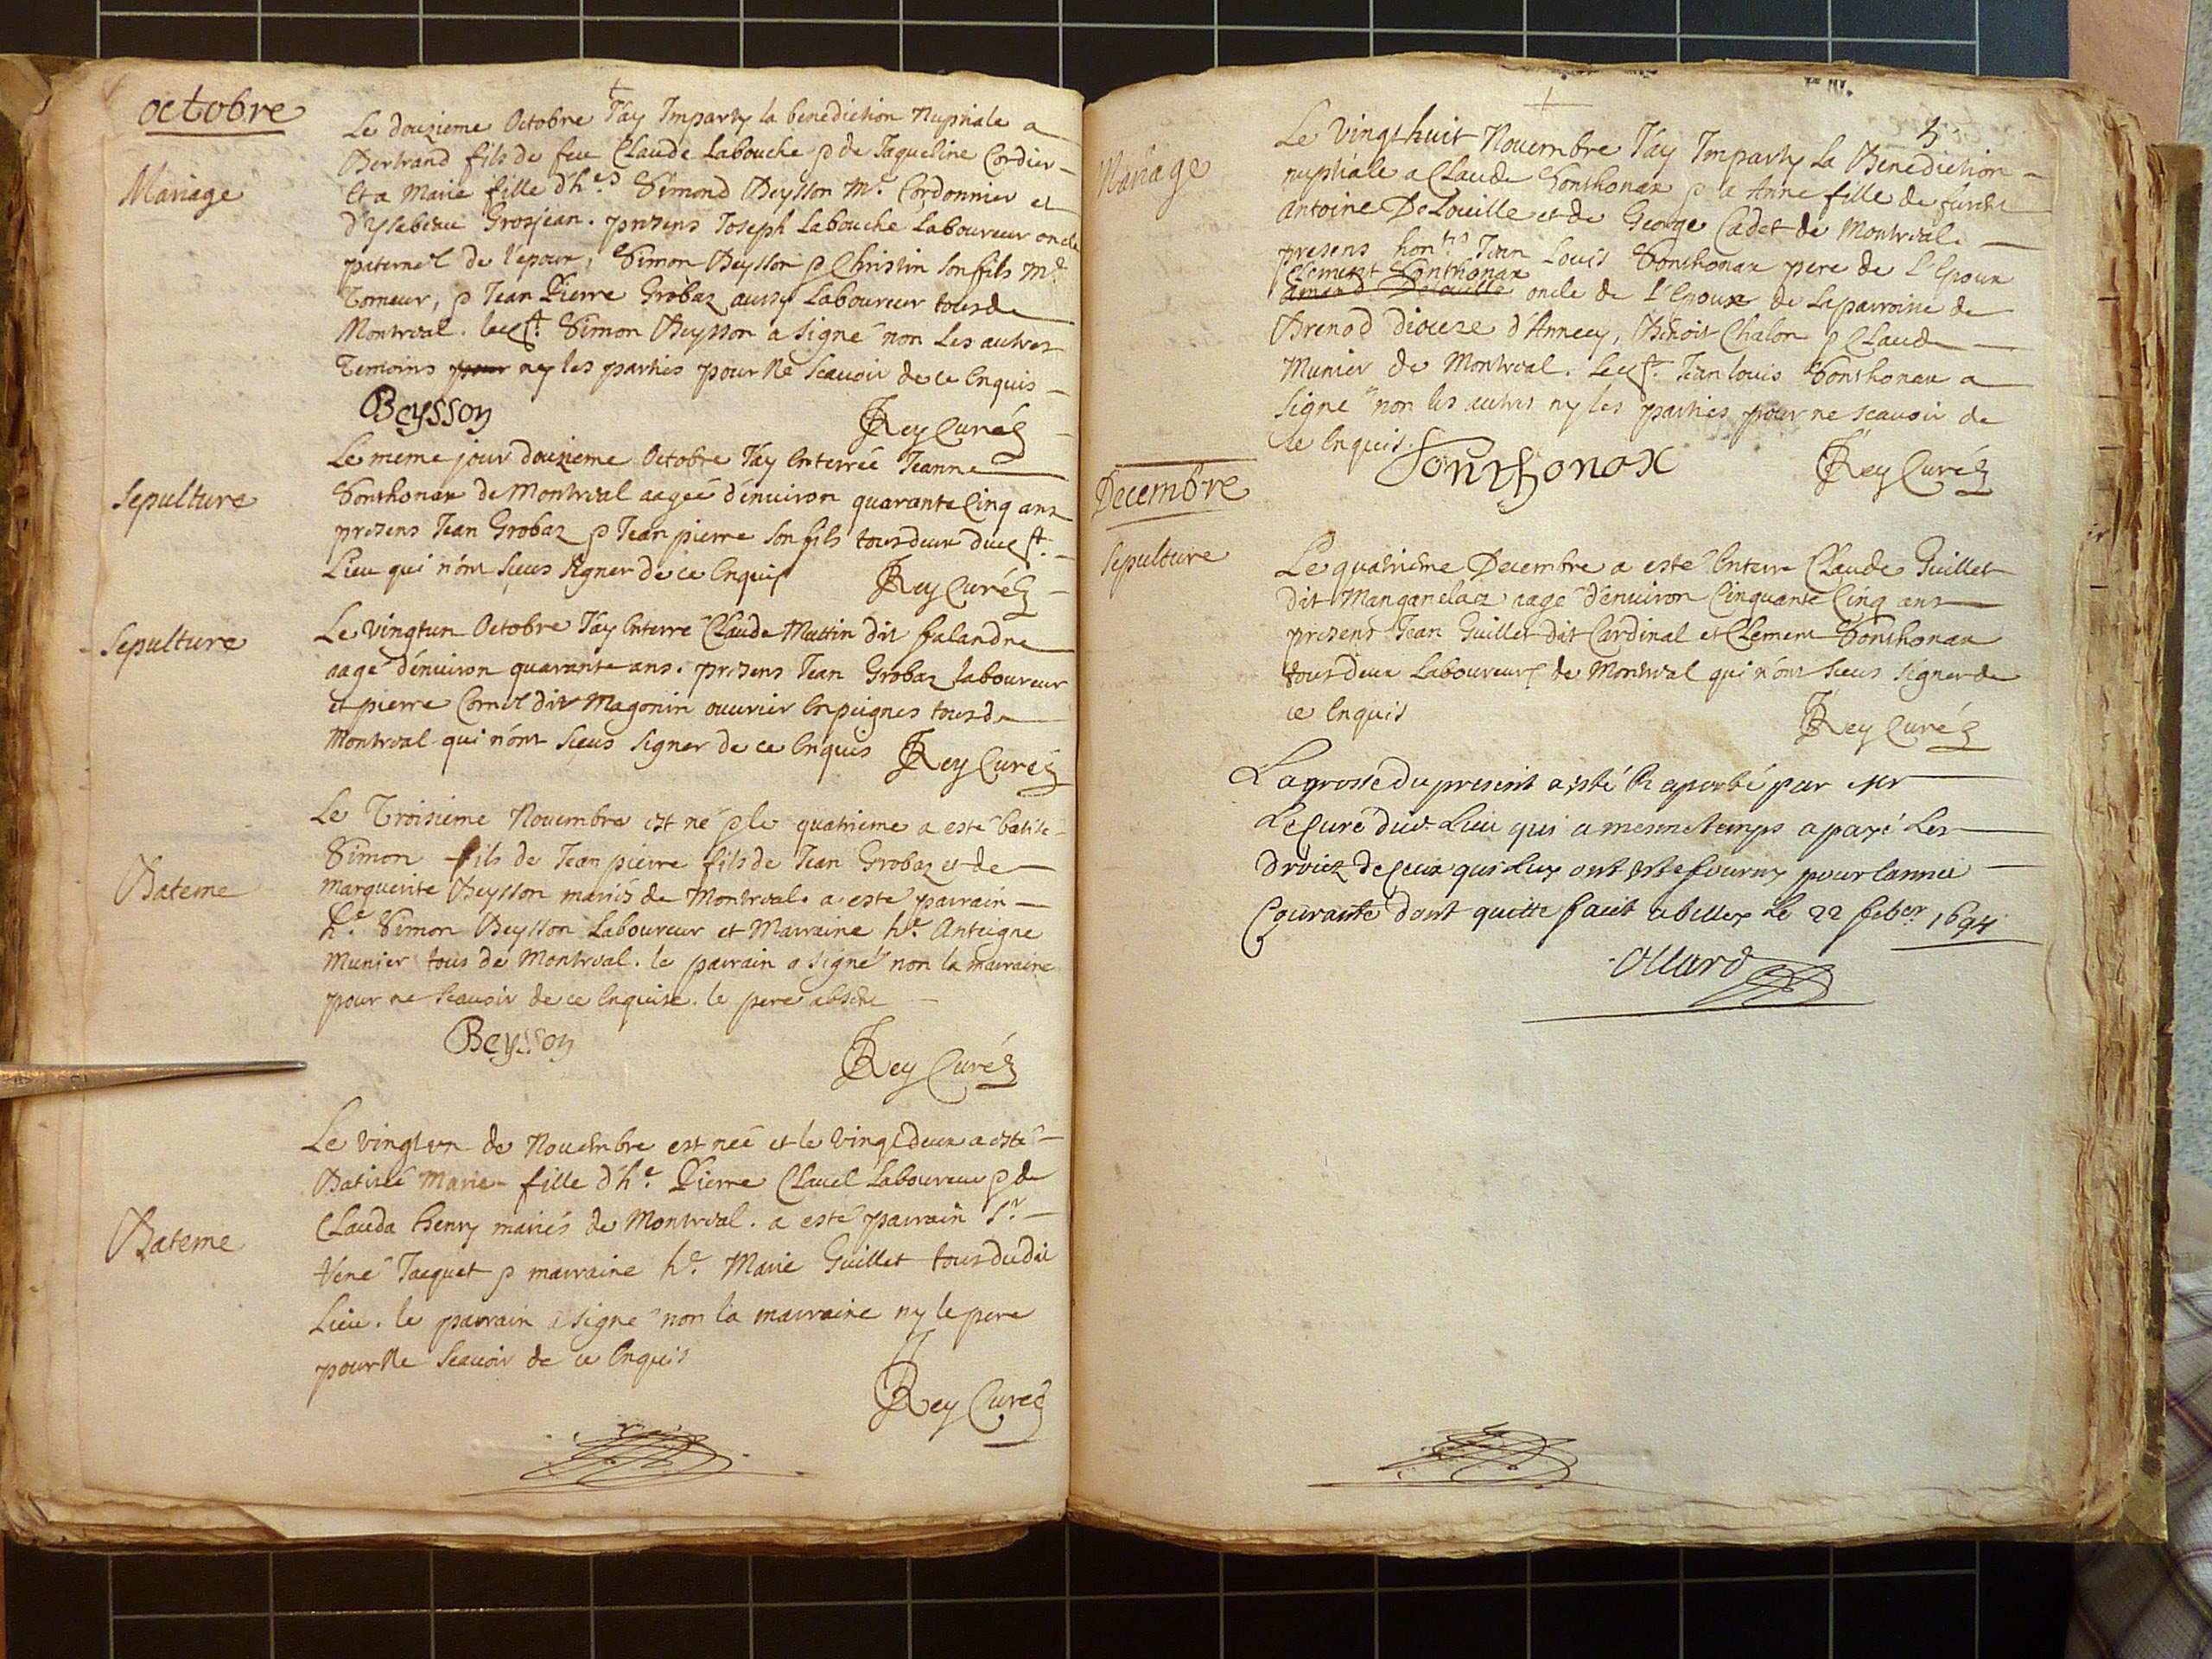 octobre
Mariage
Le douzieme Octobre J'ay Imparty la benediction Nuptiale a
Bertrand fils de feu Claude Labouche & de Jaqueline Cordier
Et a Marie fille d'h.es Simond Beysson M.e Cordonnier et
d'Ysabeau Grosjean. presens Joseph Labouche Laboureur oncle
paternel de l'epoux, Simon Beysson & Christin son fils M.e
Torneur, & Jean Pierre Grobaz aussy Laboureur tous de
Montreal. Simon Beysson a signé non les autres
Temoins pour ny les parties pour Ne Scavoir de ce Enquis
Beysson
JRey Curé
Sepulture
Le meme jour douzieme Octobre J'ay Enterrée Jeanne
Sonthonax de Montreal aagée d'environ quarante Cinq ans
presens Jean Grobaz & Jean pierre son fils tous deux dud.t
Lieu qui n'ont sceus signer de ce Enquis
JRey Curé
Sepulture
Le vingtun Octobre J'ay Enterré Claude Mattin dit falandre
aagé d'environ quarante ans. presens Jean Grobaz laboureur
et pierre Cornel dit Magonin ouvrier En peignes tous de
Montreal qui n'ont sceus signer de ce Enquis
JRey Curé
Bateme
Le Troisieme Novembre est né & le quatrieme a esté batisé
Simon fils de Jean pierre fils de Jean Grobaz et de
marguerite Beysson mariés de Montreal. a esté parrain
h.e Simon Beysson Laboureur et Marraine h.e Anteigne
Munier tous de Montreal. le parrain a signé non la marraine
pour ne scavoir de ce Enquise. le pere absent
Beysson
JRey Curé
Bateme
Le vingt un de Novembre est née et le vingt deux a esté
Batisée Marie fille d'h.e Pierre Clavel Laboureur & de
Clauda henry mariés de Montreal. a esté parrain S.r
René Jacquet & marraine h.e Marie Guillet tous dudit
Lieu. le parrain a signé non la marraine ny le pere
pour Ne Scavoir de ce Enquis
JRey Curé
Mariage
Le Vingt huit Novembre J'ay Imparty La Benediction
nuptiale a Claude Sonthonax & a Anne fille de
antoine DeLouille et de George Cadet de Montreal.
presens hon.es Jean Louis Sonthonax pere de L'Epoux
Clement Sonthonax
amand Delouille oncle de L'Epoux de La parroisse de
Brenod Dioceze d'Annecy, Benoit Chalon & Claude
Munier de Montreal. Jean louis Sonthonax a
signé non les autres ny les parties pour ne scavoir de
ce Enquis.
Sonthonax
JRey Curé
Decembre
Sepulture
Le quatrieme Decembre a esté Enterré Claude Guillet
dit Manganelaz aagé d'environ Cinquante Cinq ans
presens Jean Guillet dit Cardinal et Clement Sonthonax
tous deux Laboureurs de Montreal qui n'ont sceus signer de
ce Enquis
JRey Curé
La grosse du present a esté Raporté par Mr
Le Curé dud. Lieu qui a mesme temps a payé Les
droicz de ceux qui luy ont esté fourny pour lannée
Courante dont quitte faict a belley le 22 feber 1694